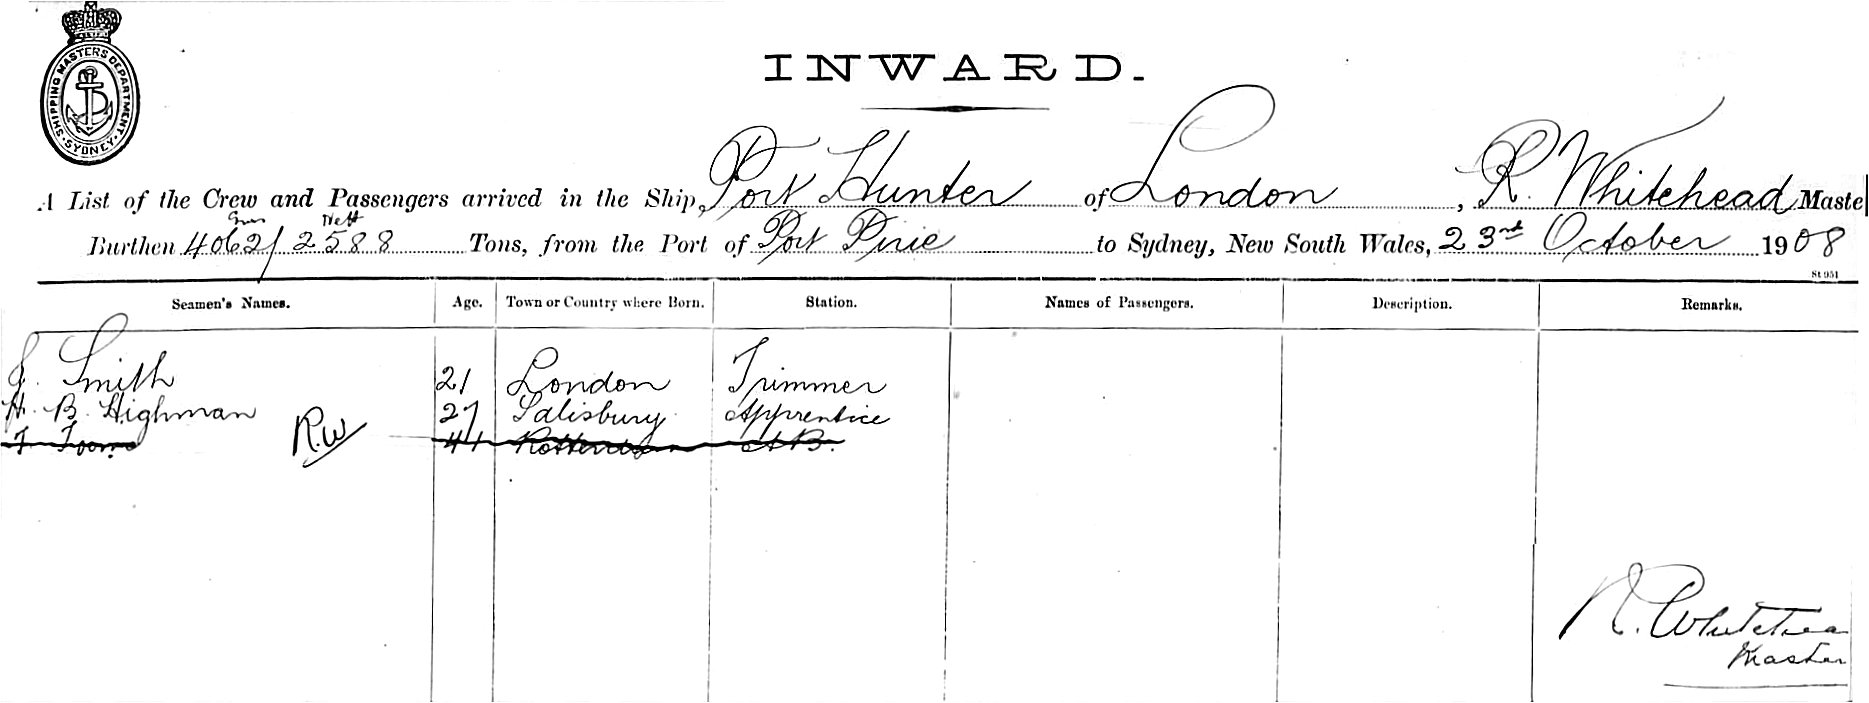 SHIPPING MASTERS DEPARTMENT
SYDNEY
INWARD.
A List of the Crew and Passengers arrived in the Ship, Port Hunter of London, R. Whitehead Maste
Gross Nett
Burthen 4062/2588 Tons, from the Port of Port Pirie to Sydney, New South Wales, 23rd October 1908
St 951
Seamen's Names. Age. Town or Country where Born. Station. Names of Passengers. Description. Remarks.
J. Smith 21 London Trimmer
H. B. Highman 27 Salisbury Apprentice
RW 44 Rotterdam AB.
R. Whitehea
Master